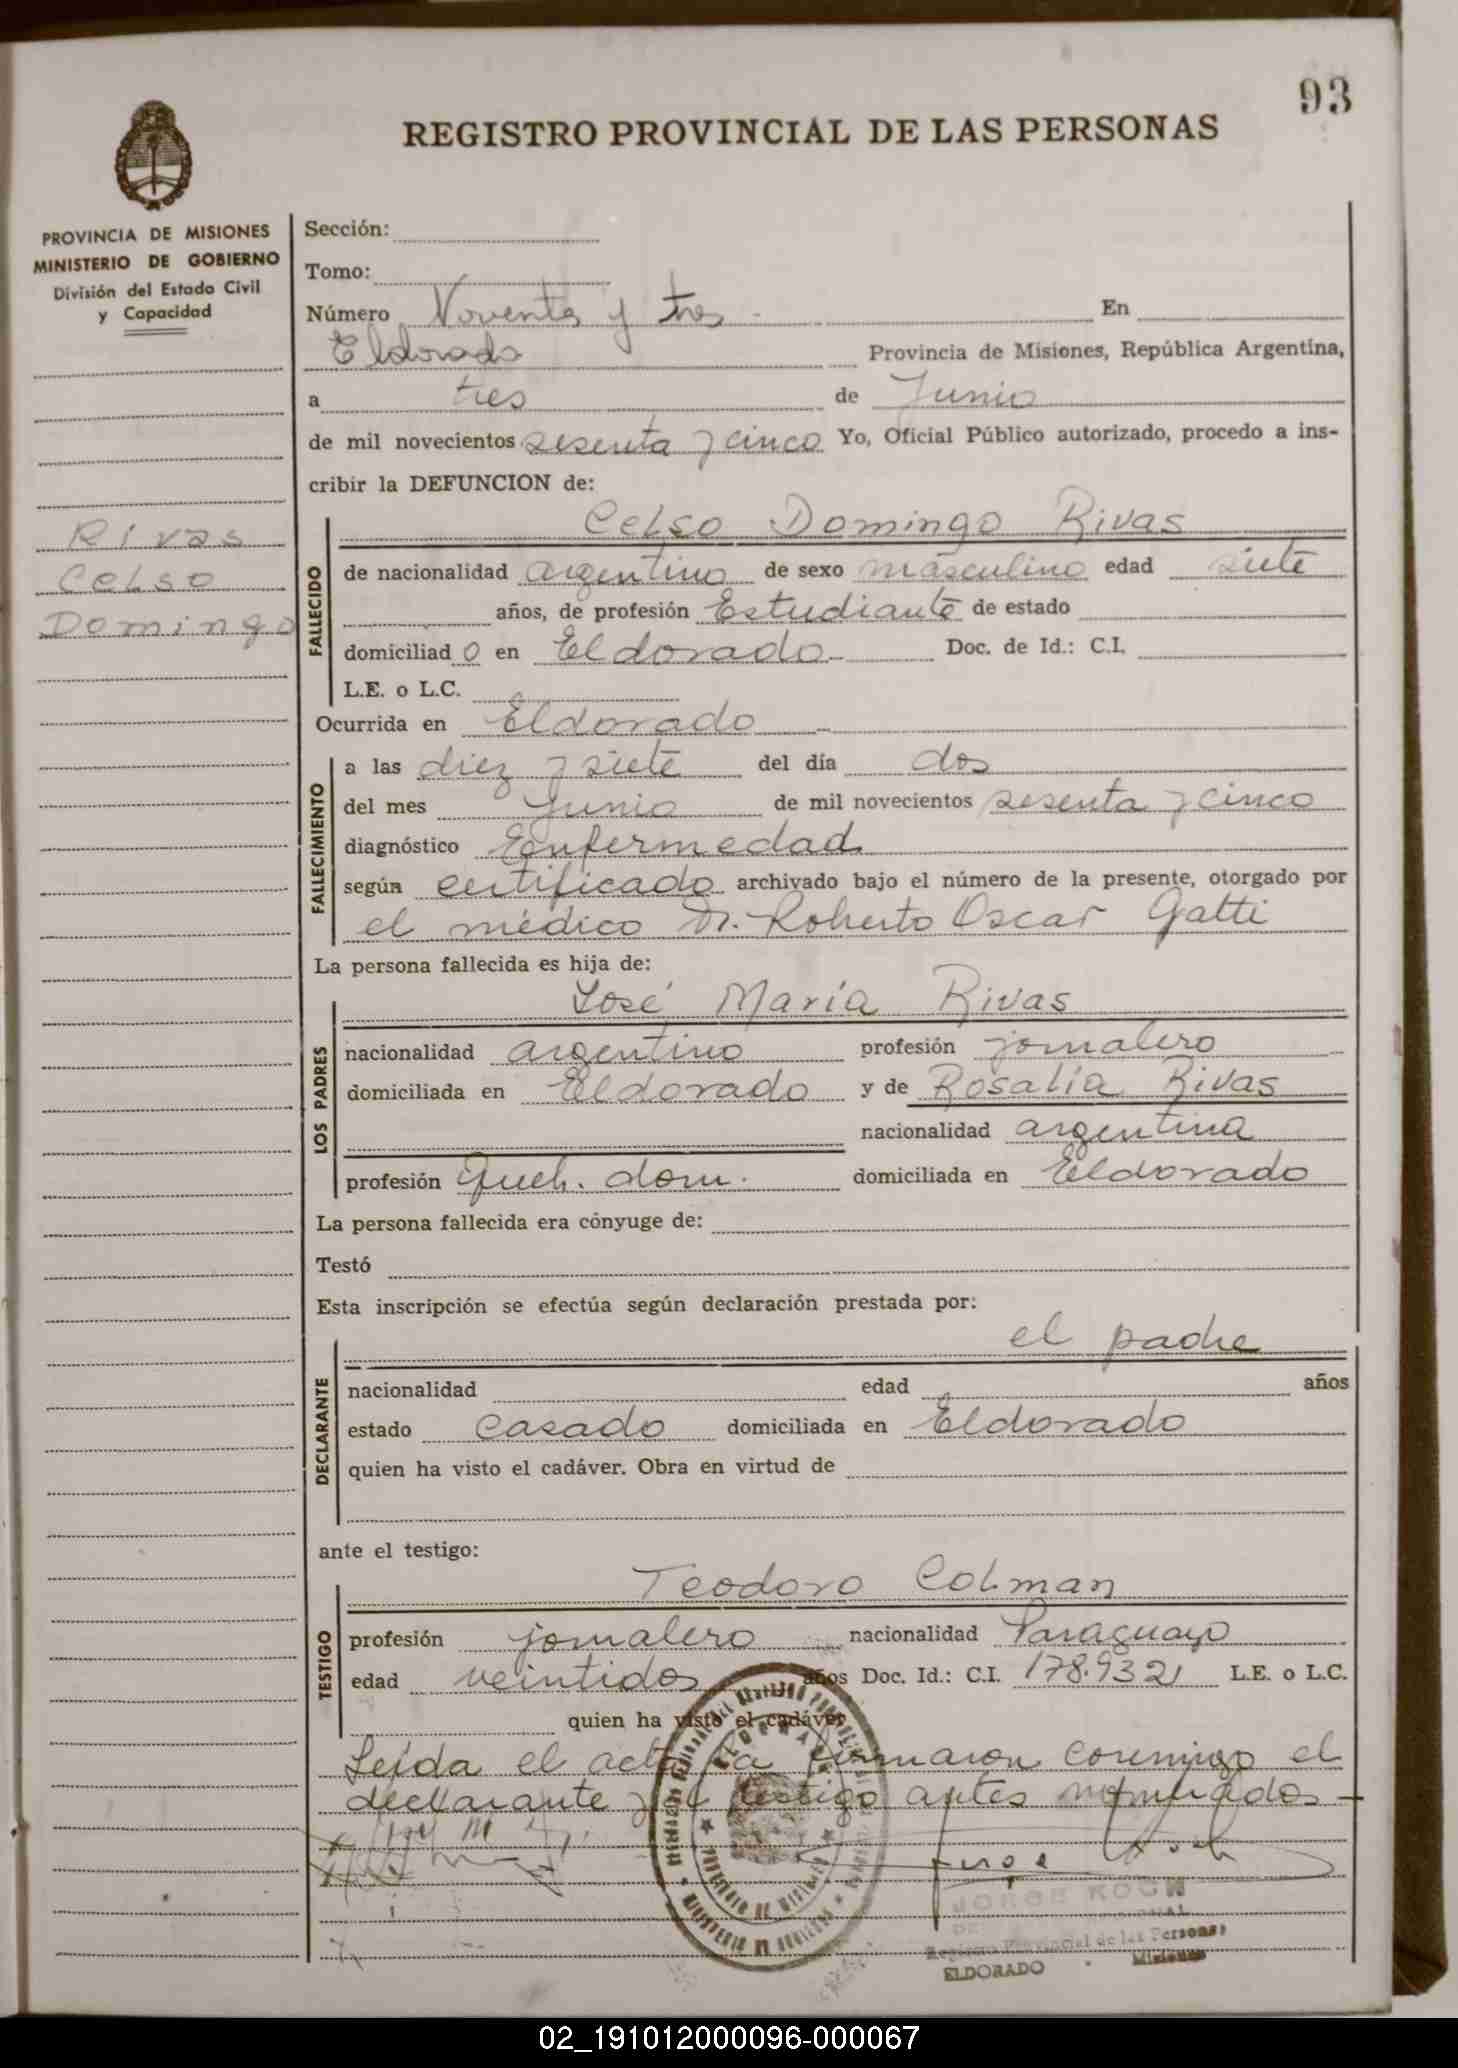 93
REGISTRO PROVINCIAL DE LAS PERSONAS
PROVINCIA DE MISIONES
MINISTERIO DE GOBIERNO
División del Estado Civil
y Capacidad
Rivas
Celso
Domingo
Sección:
Tomo:
Número Noventa y tres En
Eldorado Provincia de Misiones, República Argentina,
a tres de Junio
de mil novecientos sesenta y cinco Yo, Oficial Público autorizado, procedo a ins-
cribir la DEFUNCION de:
FALLECIDO
Celso Domingo Rivas
de nacionalidad argentino de sexo masculino edad siete
años, de profesión Estudiante de estado
domiciliado en Eldorado Doc. de Id.: C.I.
L.E. o L.C.
Ocurrida en Eldorado
FALLECIMIENTO
a las diez y siete del día dos
del mes Junio de mil novecientos sesenta y cinco
diagnóstico Enfermedad
según certificado archivado bajo el número de la presente, otorgado por
el médico Dr. Roberto Oscar Gatti
La persona fallecida es hija de:
LOS PADRES
José María Rivas
nacionalidad argentino profesión jornalero
domiciliada en Eldorado y de Rosalía Rivas
nacionalidad argentina
profesión Queh. dom. domiciliada en Eldorado
La persona fallecida era cónyuge de:
Testó
Esta inscripción se efectúa según declaración prestada por:
DECLARANTE
el padre
nacionalidad edad años
estado casado domiciliada en Eldorado
quien ha visto el cadáver. Obra en virtud de
ante el testigo:
TESTIGO
Teodoro Colman
profesión jornalero nacionalidad Paraguayo
edad veintidos años Doc. Id.: C.I. 178.9321 L.E. o L.C.
quien ha visto el cadáver
Leída el acta la firmaron conmigo el
declarante y el testigo antes nombrados -
JORGE KOCH
Registro Provincial de las Personas
ELDORADO - Misiones
02_191012000096-000067